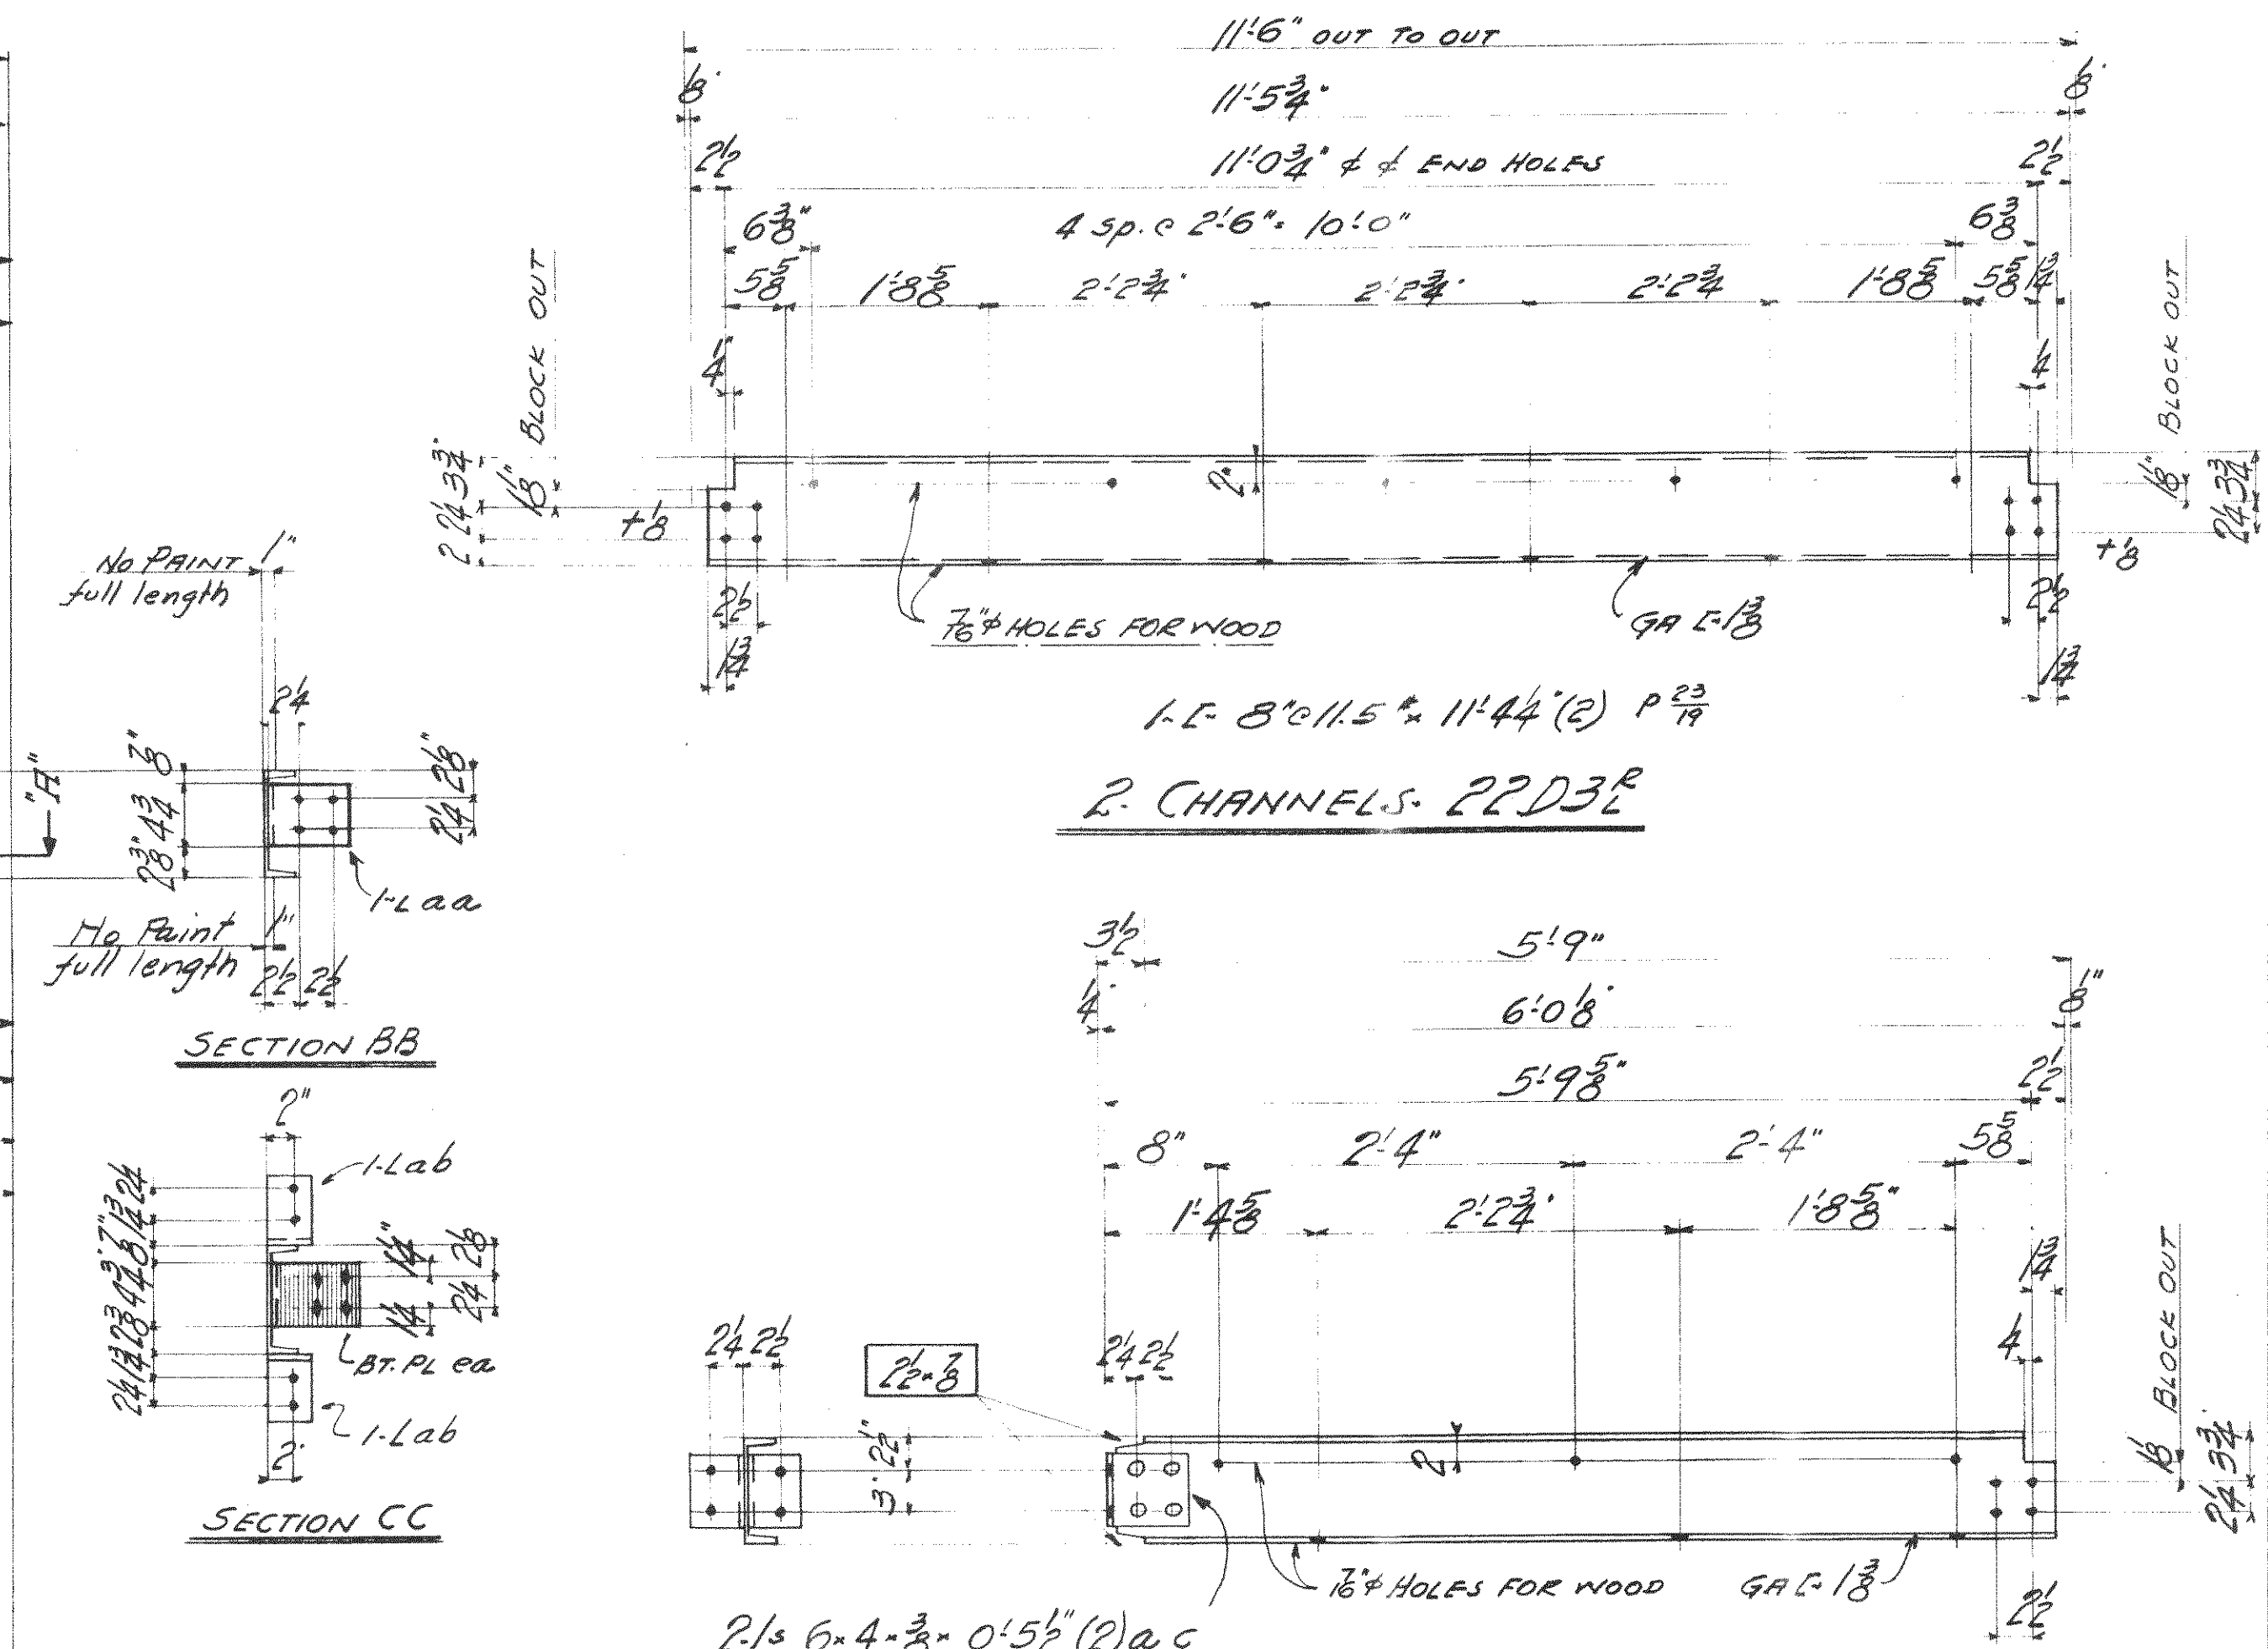 11'-6" OUT TO OUT
1/8" 11'-5 3/4" 1/8"
2 1/2 11'-0 3/4" ¢ ¢ END HOLES 2 1/2
6 3/8" 4 SP. @ 2'-6" = 10'-0" 6 3/8
5 5/8 1'-8 5/8 2'-2 3/4" 2'-2 3/4" 2'-2 3/4 1'-8 5/8 5 5/8 1 3/4
1/4" 1/4
1 1/8" BLOCK OUT
2 2 1/4 3 3/4"
+1/8
2"
1 1/8" BLOCK OUT
2 1/4 3 3/4
+1/8
2 1/2
1 3/4
7/16"φ HOLES FOR WOOD
GA [- 1 3/8
2 1/2
1 3/4
1-[- 8" @ 11.5# x 11'-4 1/4" (2) P 23/19
2- CHANNELS- 22D3 R L
NO PAINT 1"
full length
2 1/4
"A"
2 3/8" 4 3/4 7/8"
2 1/4 2 1/8"
1-L aa
No Paint 1"
full length
2 1/2 2 1/2
SECTION BB
2"
1-L ab
2 1/4 1 3/4 2 3/8 4 3/4" 7/8" 1 3/4 2 1/4
1 1/4 1 1/4"
2 1/4 2 1/8
BT. PL ea
1-L ab
2"
SECTION CC
3 1/2 5'-9"
1/4" 6'-0 1/8" 1/8"
5'-9 5/8" 2 1/2
8" 2'-4" 2'-4" 5 5/8
1'-4 5/8 2'-2 3/4" 1'-8 5/8"
1 3/4
1/4
2 1/4 2 1/2
2 1/2 x 7/8
2 1/4 2 1/2
3" 2 1/2"
2
1 1/8 BLOCK OUT
2 1/4 3 3/4"
7/16"φ HOLES FOR WOOD
GA [- 1 3/8
2 1/2
2-Ls 6 x 4 x 3/8 x 0'-5 1/2" (2) a c